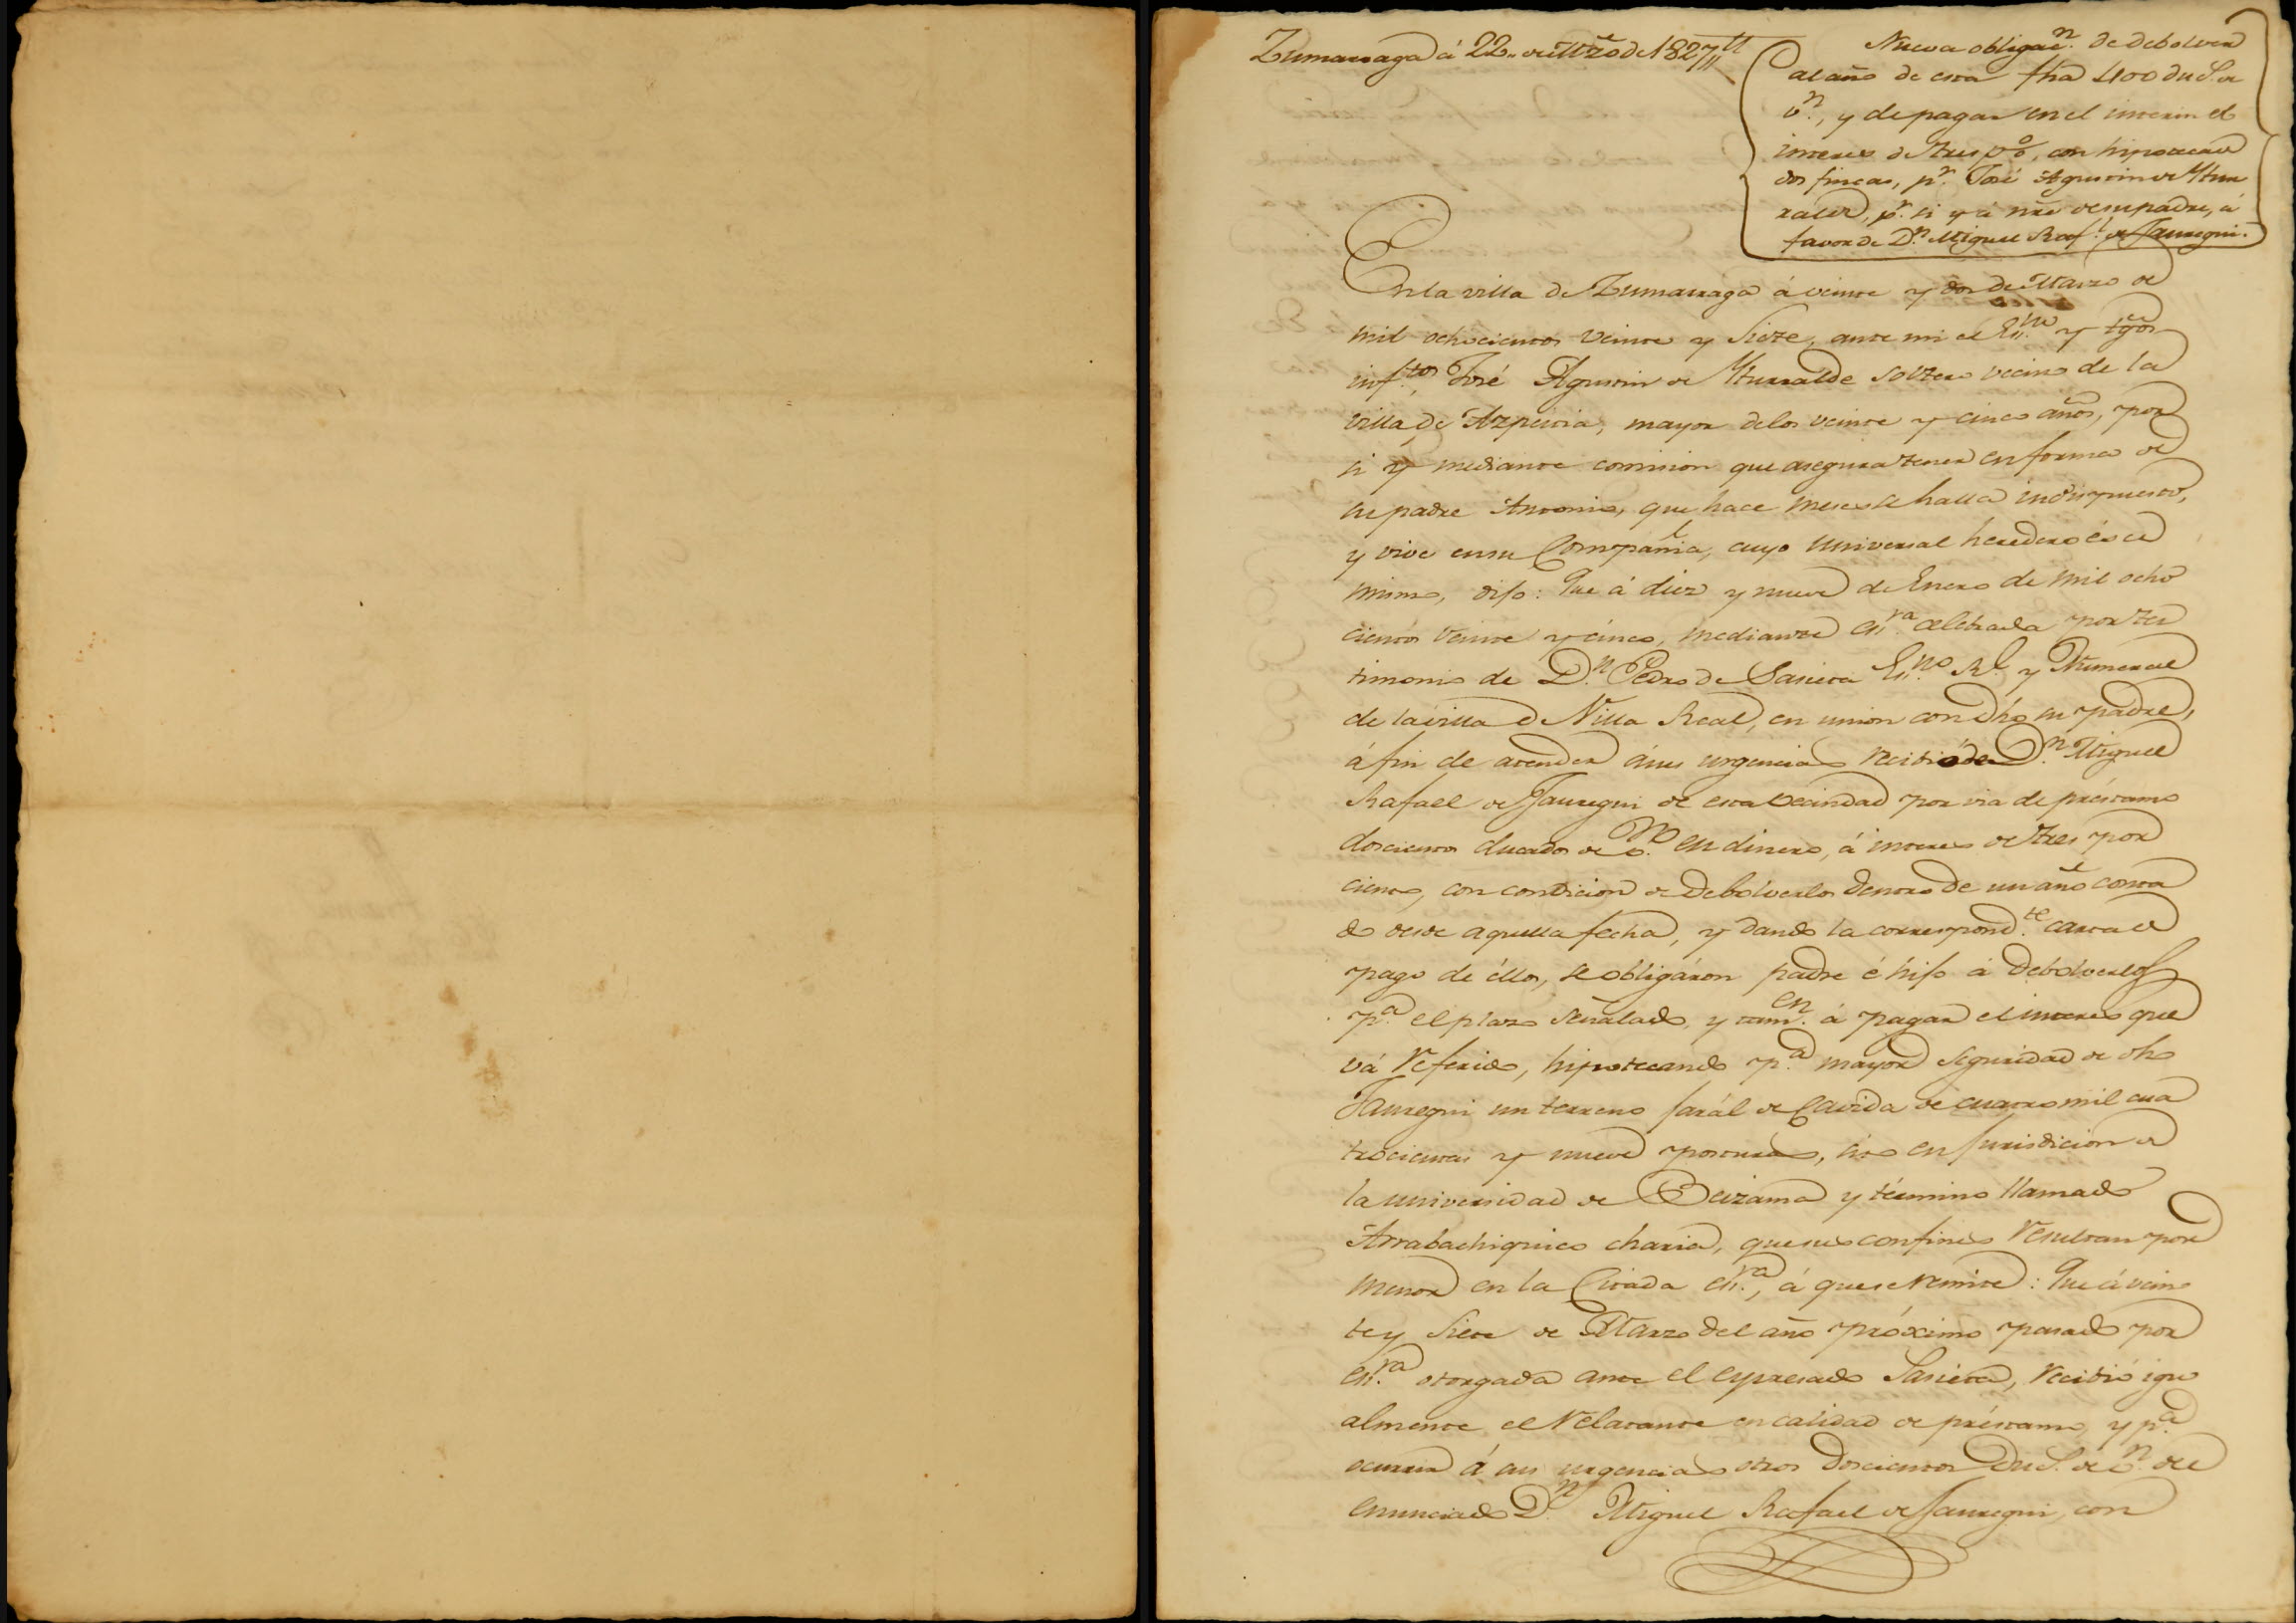 Zumarraga á 22 de Mzo de 1827
Nueva obligacn. de debolver
al año de esta fha 400 duc.s de
vn., y de pagar en el interin el
interes de tres p%, con hipoteca de
dos fincas, pr. José Agustin de Ytur
ralde, pr. si y á nre de su padre, á
favor de Dn. Miguel Rafl. de Jauregui.
En la villa de Zumarraga á veinte y dos de Marzo de
mil ochocientos veinte y siete, ante mi el Essno. y tgos
infrtos, José Agustin de Yturralde soltero vecino de la
villa de Azpeitia, mayor de los veinte y cinco años, por
si y mediante comision que asegura tener en forma de
su padre Antonio, que hace meses se halla indispuesto,
y vive en su Compañia, cuyo universal heredero és el
mismo, dijo: Que á diez y nueve de Enero de mil ocho
cientos veinte y cinco, mediante essra. celebrada por tes
timonio de Dn. Pedro de Sasieta Essno. Rl. y Numeral
de la villa de Villa Real, en union con dho su padre,
á fin de atender á sus urgencias recibió de Dn. Miguel
Rafael de Jauregui de esta vecindad por via de préstamo
doscientos ducados de vn. en dinero, á interes de tres por
ciento, con condicion de debolverlos dentro de un año conta
do desde aquella fecha, y dando la correspondte. carta de
pago de éllos, se obligáron padre é hijo á debolverlos
pa. el plazo señalado, y tamen. á pagar el interes que
vá referido, hipotecando pa. mayor seguridad de dho
Jauregui un terreno jarál de cavida de cuatro mil cua
trocientas y nueve posturas, sito en jurisdicion de
la universidad de Beizama y término llamado
Arrabachiquico charia, que sus confines resultan por
menor en la citada essra., á que se remite: Que á vein
te y siete de Marzo del año próximo pasado por
essra. otorgada ante el expresado Sasieta, recibió igu
almente el relatante en calidad de préstamo, y pa.
ocurrir á sus urgencias otros doscientos duc.s de vn. del
enunciado Dn. Miguel Rafael de Jauregui, con